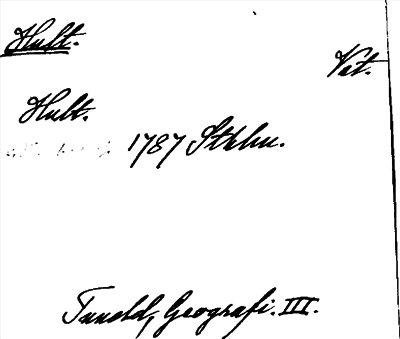 Hult.
Vät.
Hult.
1787 Sthlm.
Tuneld, Geografi. III.